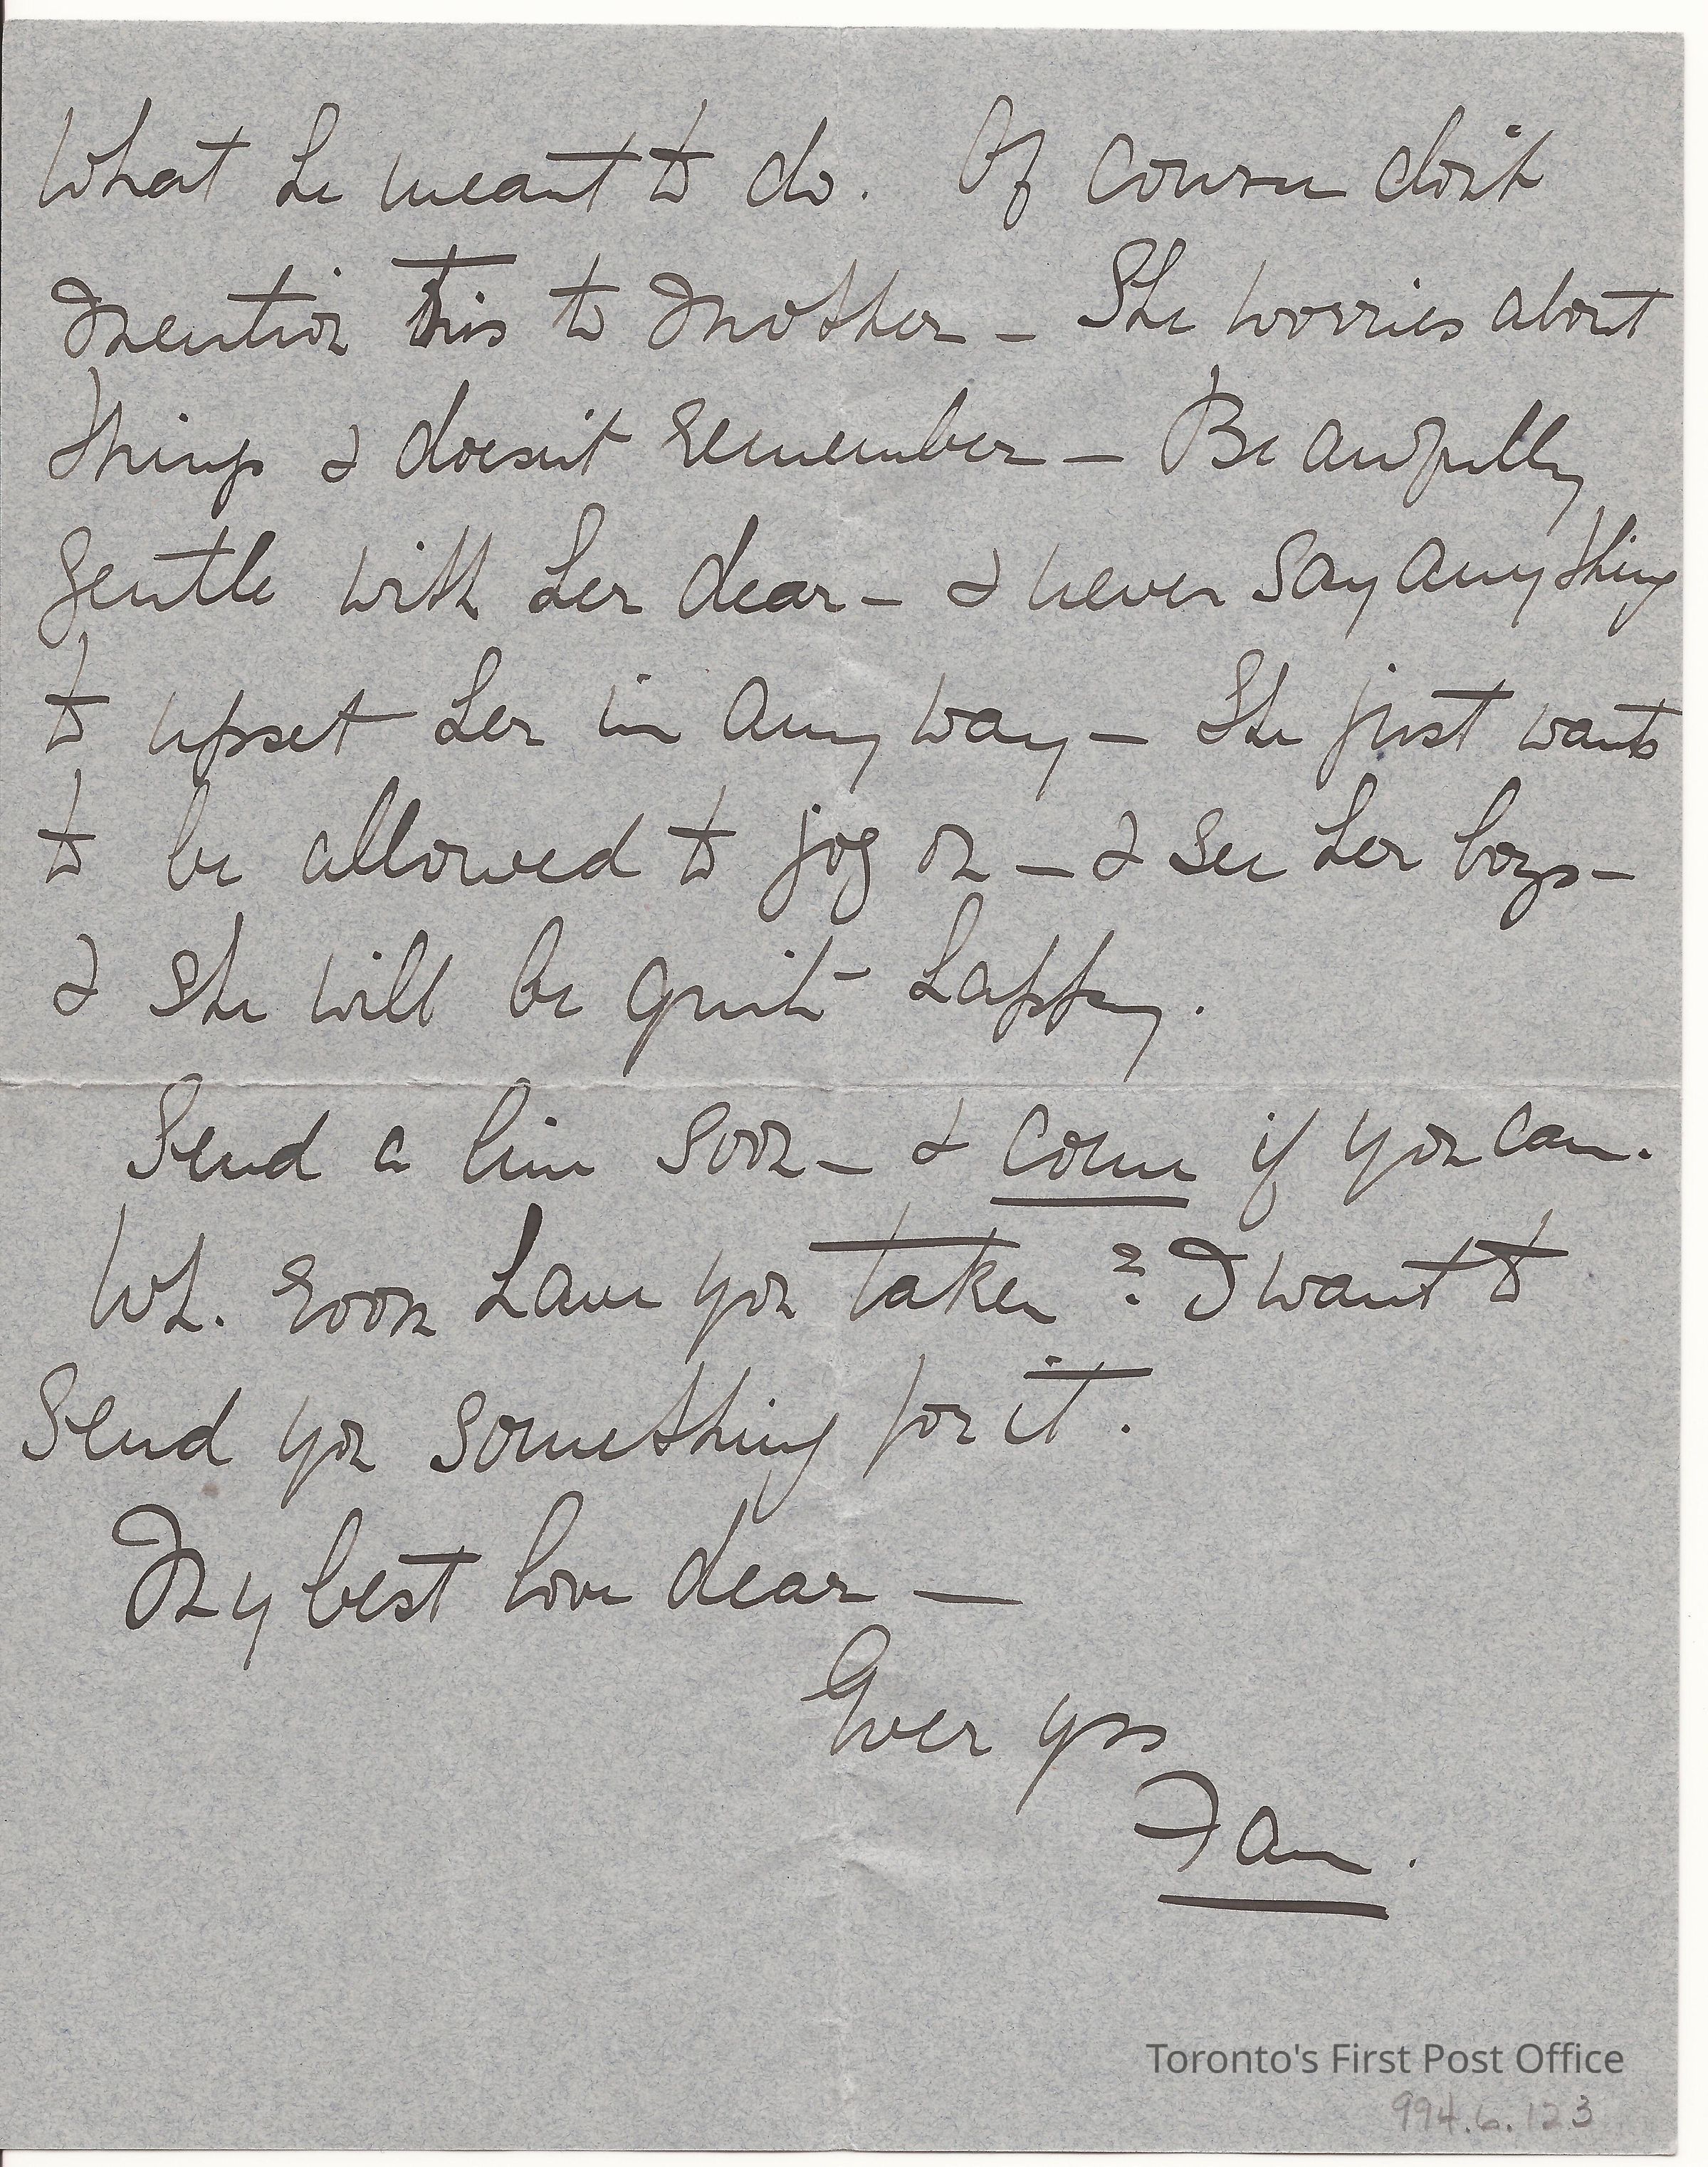 What he meant to do. Of course don't
mention this to Mother – She worries about
things & doesn't remember – Be awfully
gentle with her dear – & never say anything
to upset her in any way – She just wants
to be allowed to jog on – & see her boys –
& she will be quite happy.
Send a line soon – & come if you can.
Wh. room have you taken? I want to
send you something for it.
My best love dear –
Ever yrs
Fan.
Toronto's First Post Office
994.6.123